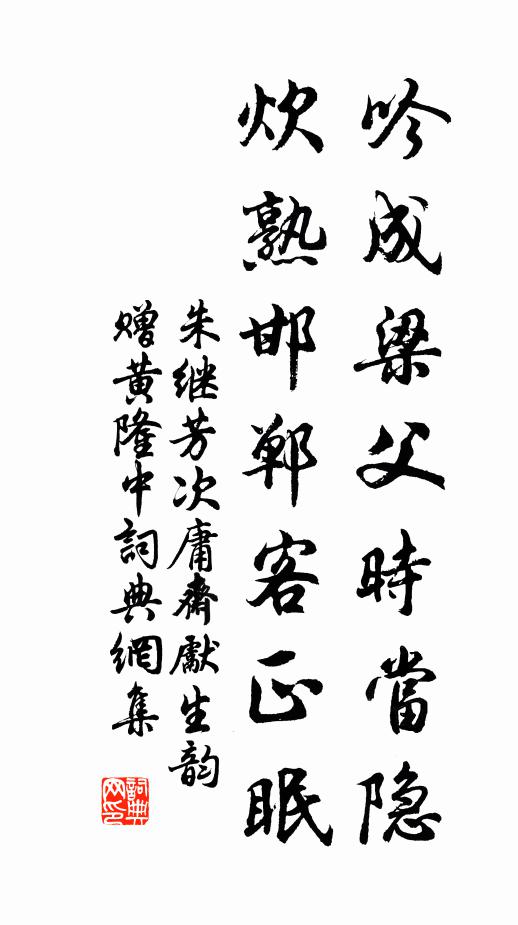 吟成梁父時當隐
炊熟邯鄲客正眠
朱继芳次庸齋獻生韵
赠黃隆中詞典網集
詞典网印